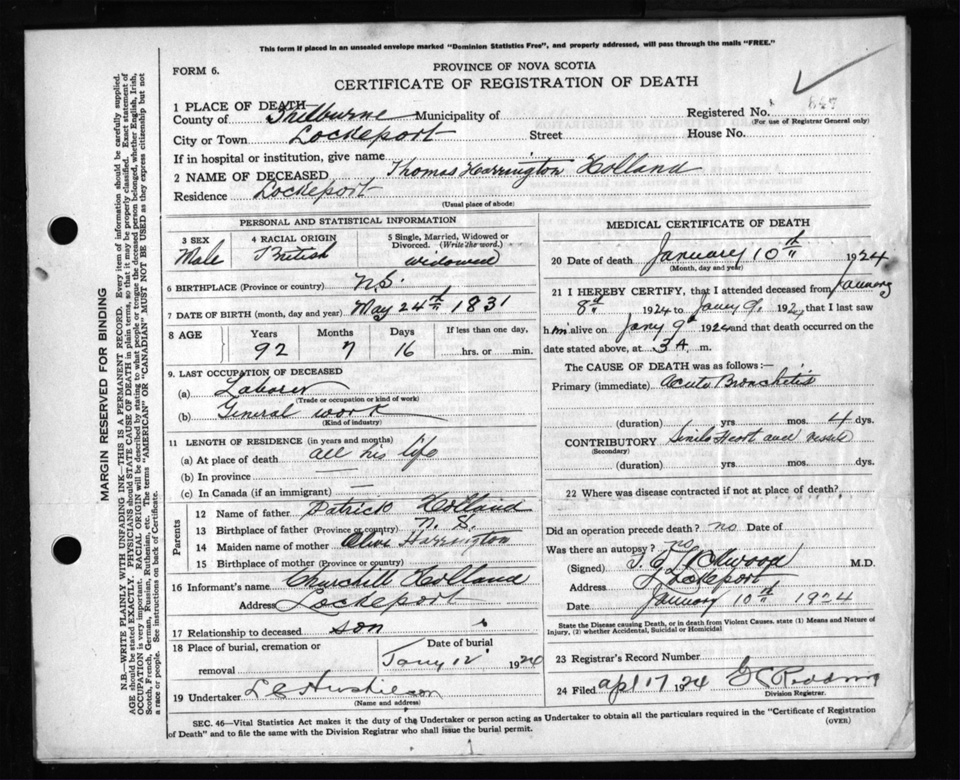 This form if placed in an unsealed envelope marked "Dominion Statistics Free", and properly addressed, will pass through the mails "FREE."
FORM 6.
PROVINCE OF NOVA SCOTIA
CERTIFICATE OF REGISTRATION OF DEATH
1 PLACE OF DEATH
County of Shelburne Municipality of
Registered No.
(For use of Registrar General only)
City or Town Lockeport Street House No.
If in hospital or institution, give name
2 NAME OF DECEASED Thomas Harrington Holland
Residence Lockeport
(Usual place of abode)
PERSONAL AND STATISTICAL INFORMATION
3 SEX
Male
4 RACIAL ORIGIN
British
5 Single, Married, Widowed or Divorced. (Write the word.)
widowed
6 BIRTHPLACE (Province or country) N.S.
7 DATE OF BIRTH (month, day and year) May 24th 1831
8 AGE Years Months Days If less than one day,
92 7 16 hrs. or min.
9. LAST OCCUPATION OF DECEASED
(a) Laborer
(Trade or occupation or kind of work)
(b) General work
(Kind of industry)
11 LENGTH OF RESIDENCE (in years and months)
(a) At place of death all his life
(b) In province
(c) In Canada (if an immigrant)
Parents
12 Name of father Patrick Holland
13 Birthplace of father (Province or country) N. S.
14 Maiden name of mother Olive Harrington
15 Birthplace of mother (Province or country)
16 Informant's name Churchill Holland
Address Lockeport
17 Relationship to deceased son
18 Place of burial, cremation or removal
Date of burial
Jany 12 1924
19 Undertaker
(Name and address)
MEDICAL CERTIFICATE OF DEATH
20 Date of death January 10th 1924
(Month, day and year)
21 I HEREBY CERTIFY, that I attended deceased from January
8th 1924 to Jany 9, 192, that I last saw
him alive on Jany 9th 1924 and that death occurred on
date stated above, at 3 A m.
The CAUSE OF DEATH was as follows:—
Primary (immediate) Acute Bronchitis
(duration) yrs mos. 4 dys.
CONTRIBUTORY Senile Heart and vessels
(Secondary)
(duration) yrs. mos. dys.
22 Where was disease contracted if not at place of death?
Did an operation precede death? no Date of
Was there an autopsy? no
(Signed) M.D.
Address Lockeport
Date January 10th 1924
State the Disease causing Death, or in death from Violent Causes, state (1) Means and Nature of Injury, (2) whether Accidental, Suicidal or Homicidal
23 Registrar's Record Number
24 Filed apl 17 1924
Division Registrar.
SEC. 46—Vital Statistics Act makes it the duty of the Undertaker or person acting as Undertaker to obtain all the particulars required in the "Certificate of Registration
of Death" and to file the same with the Division Registrar who shall issue the burial permit.
(OVER)
MARGIN RESERVED FOR BINDING
N.B.—WRITE PLAINLY WITH UNFADING INK—THIS IS A PERMANENT RECORD. Every item of information should be carefully supplied.
AGE should be stated EXACTLY. PHYSICIANS should STATE CAUSE OF DEATH in plain terms, so that it may be properly classified. Exact statement of
OCCUPATION is very important. RACIAL ORIGIN will be described by stating to what people or tongue the deceased person belonged, whether English, Irish,
Scotch, French, German, Russian, Ruthenian, etc. The terms "AMERICAN" OR "CANADIAN" MUST NOT BE USED as they express citizenship but not
a race or people. See instructions on back of Certificate.